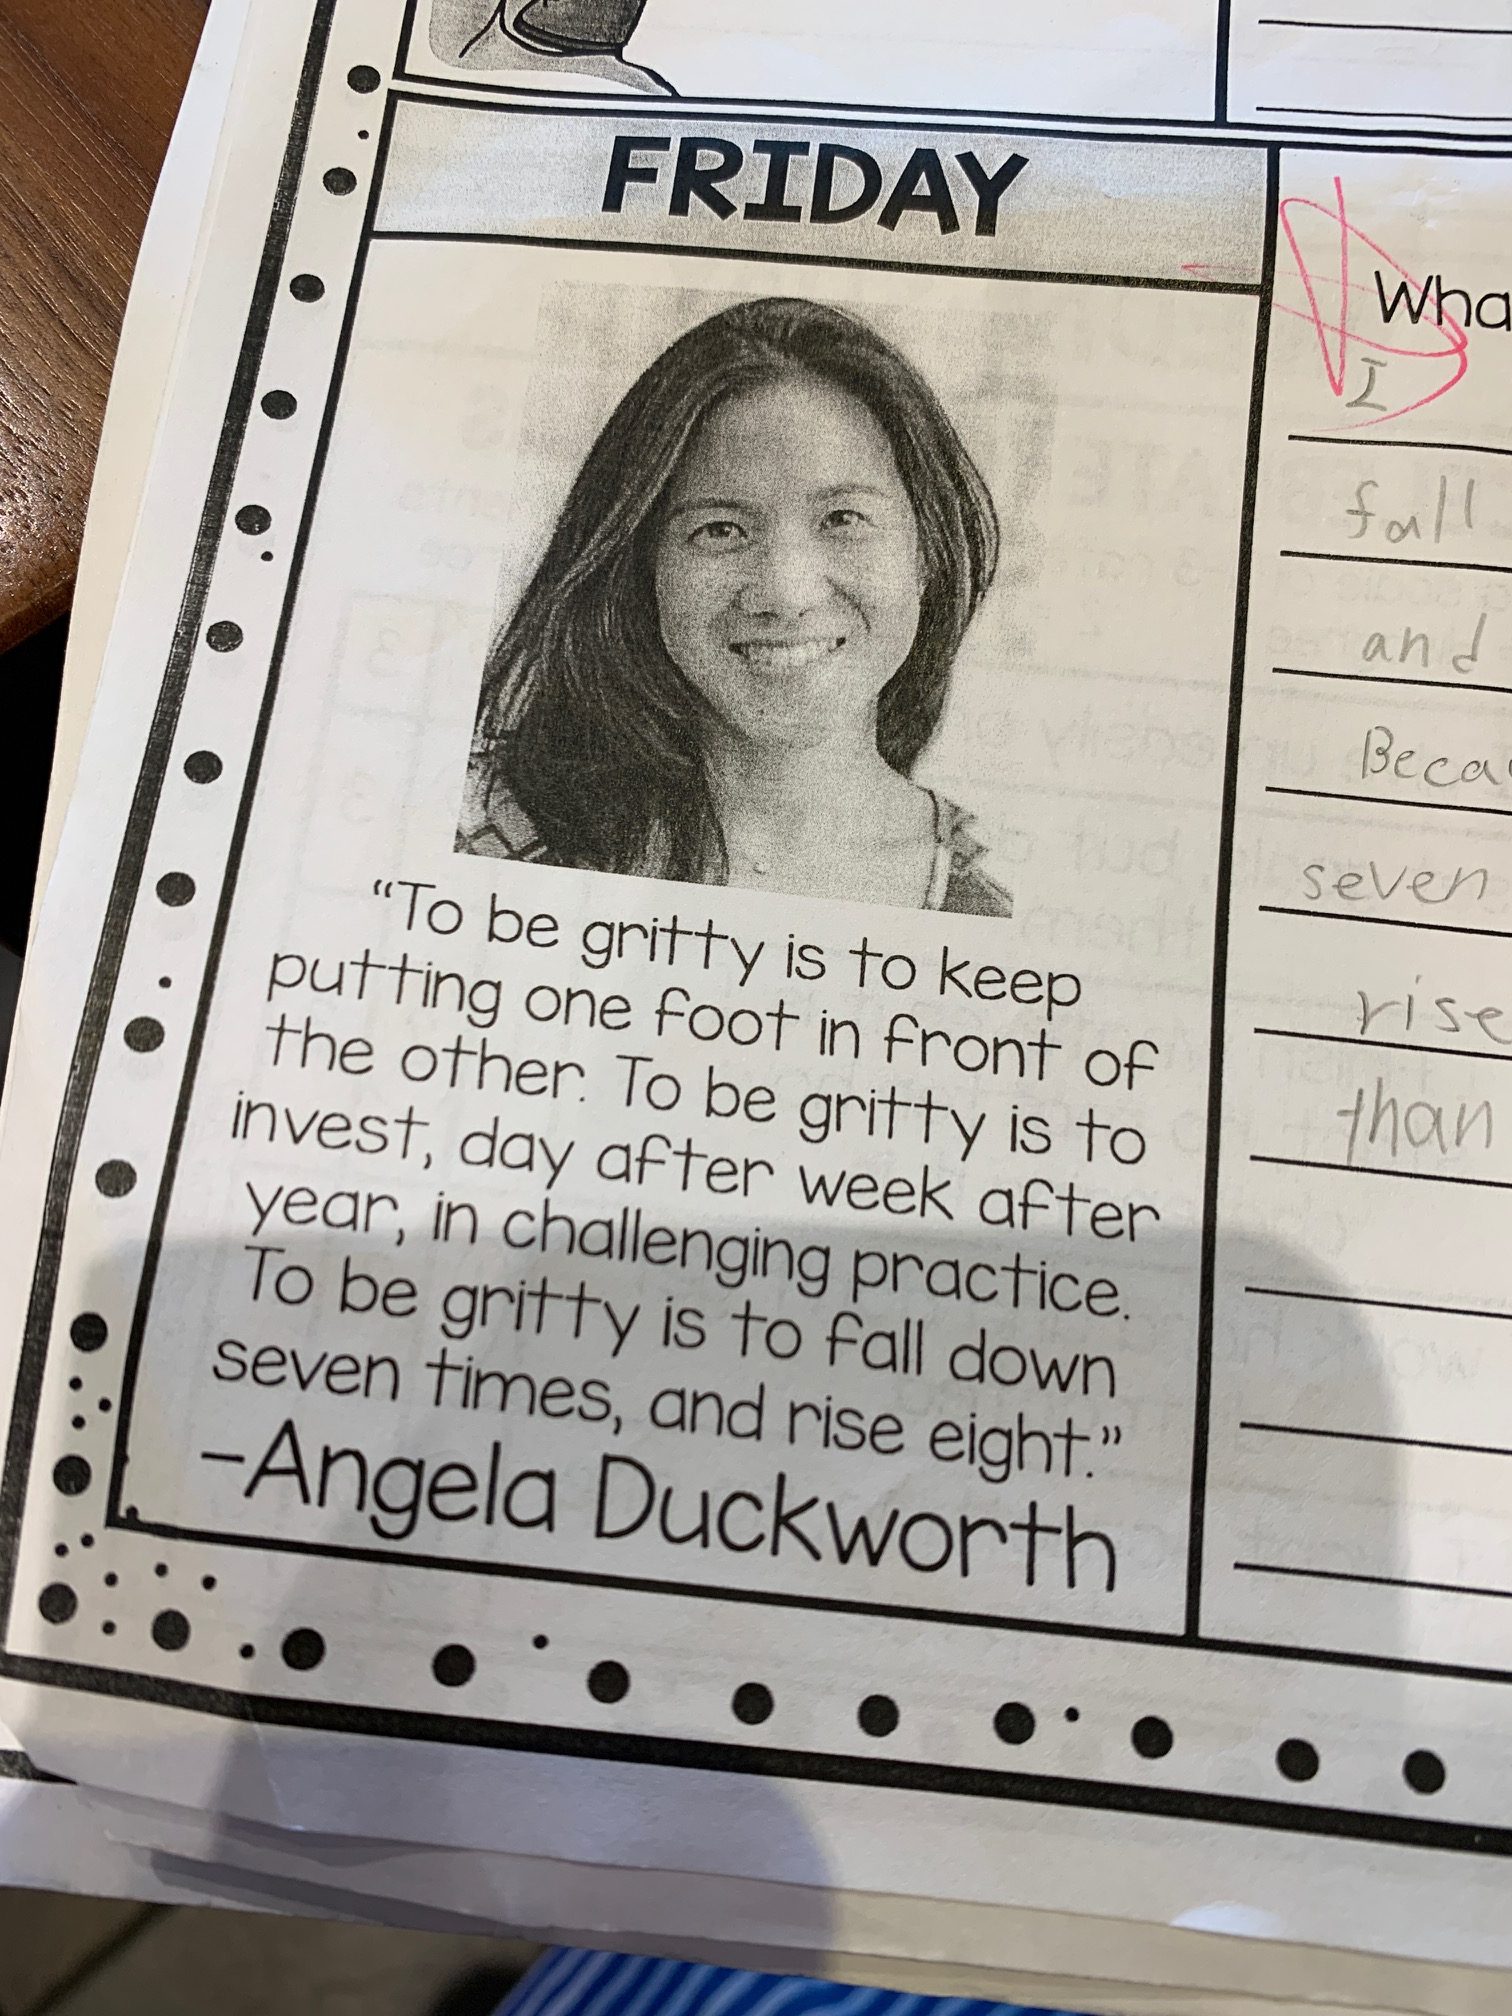 FRIDAY
"To be gritty is to keep
putting one foot in front of
the other. To be gritty is to
invest, day after week after
year, in challenging practice.
To be gritty is to fall down
seven times, and rise eight."
-Angela Duckworth
Wha
I
fall
and
Beca
seven
rise
than